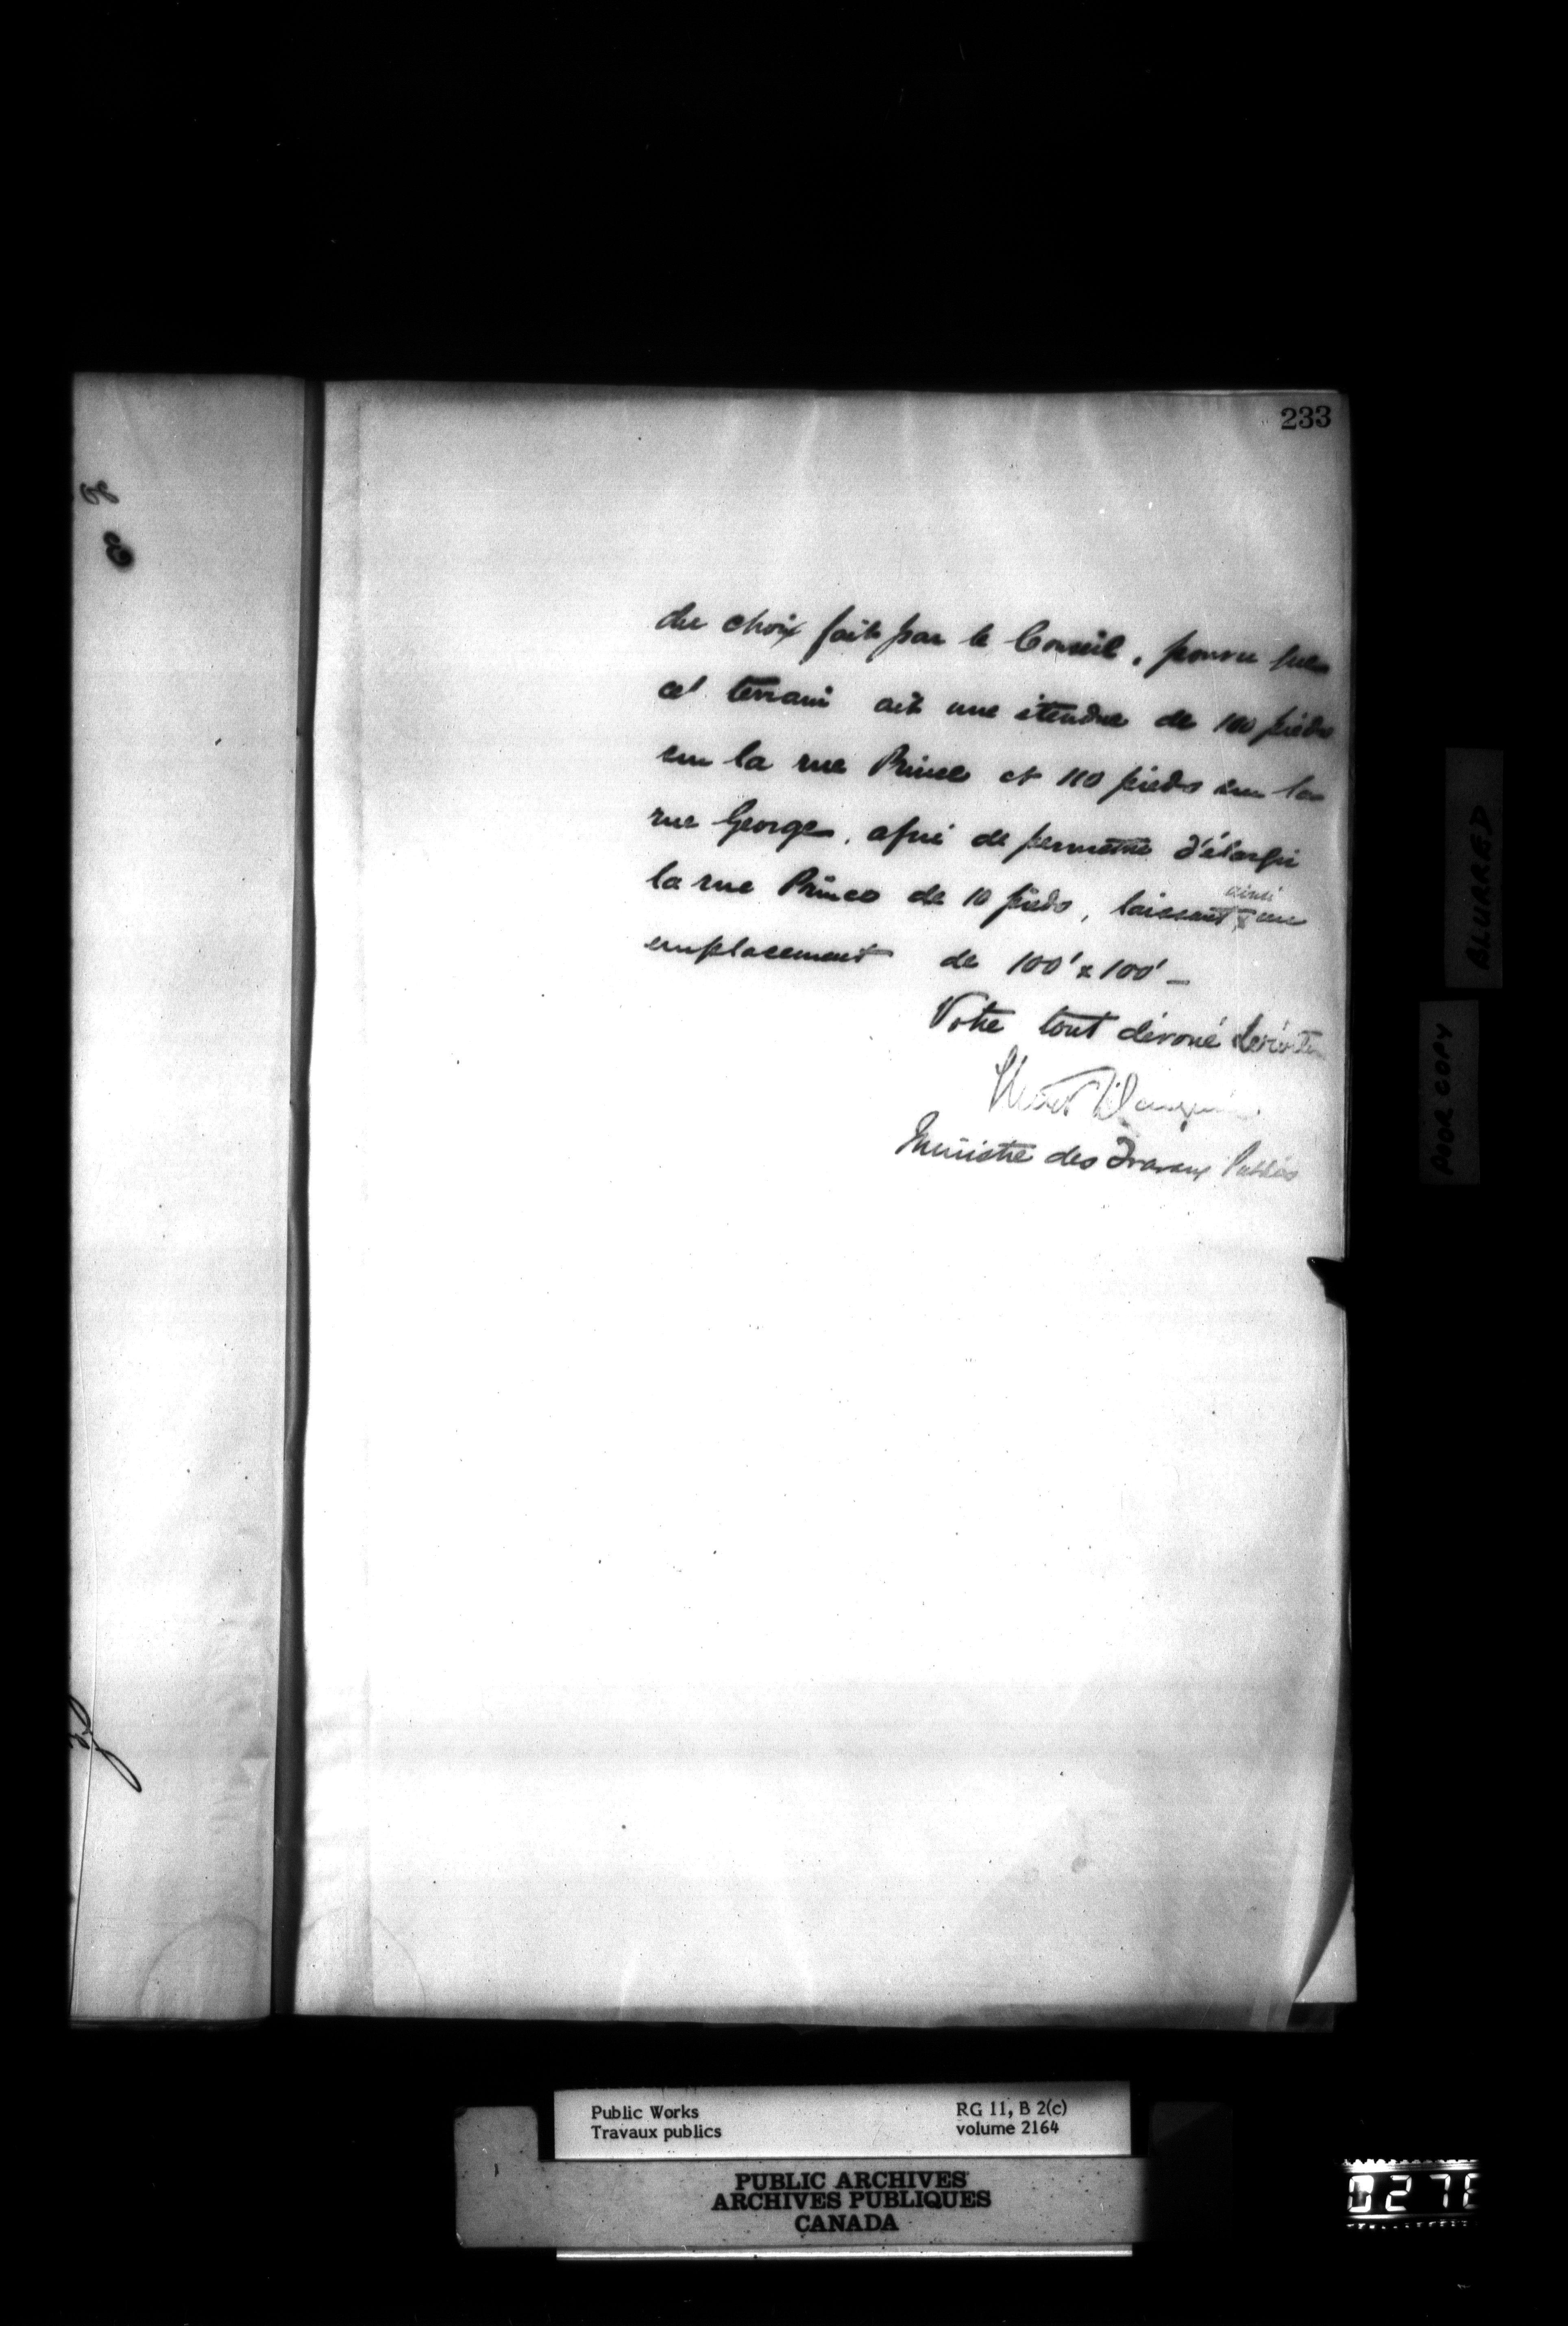 233
du choix fait par le Conseil, pourvu que
cet terrain ait une étendue de 100 pieds
sur la rue Prince et 110 pieds sur la
rue George, afin de permettre d'élargir
la rue Prince de 10 pieds, laissant ainsi un
emplacement de 100' x 100' —
Votre tout dévoué Serviteur
Ministre des Travaux Publics
BLURRED
POOR COPY
Public Works
Travaux publics
RG 11, B 2(c)
volume 2164
PUBLIC ARCHIVES
ARCHIVES PUBLIQUES
CANADA